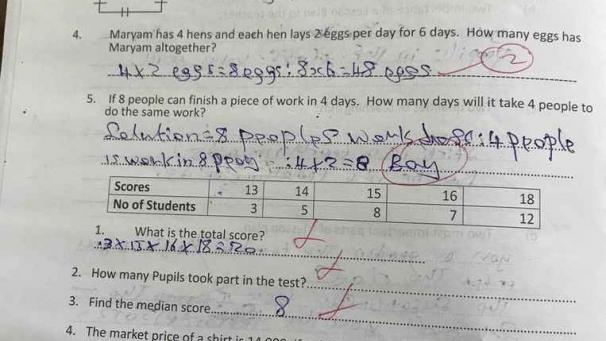 4. Maryam has 4 hens and each hen lays 2 eggs per day for 6 days. How many eggs has
Maryam altogether?
4 x 2 eggs = 8 eggs : 8x6 = 48 eggs 2
5. If 8 people can finish a piece of work in 4 days. How many days will it take 4 people to
do the same work?
Solution = 8 peoples work : 4 people
is work in 8 : 4 x 2 = 8
Scores 13 14 15 16 18
No of Students 3 5 8 7 12
1. What is the total score?
2. How many Pupils took part in the test?
3. Find the median score 8
4. The market price of a shirt is